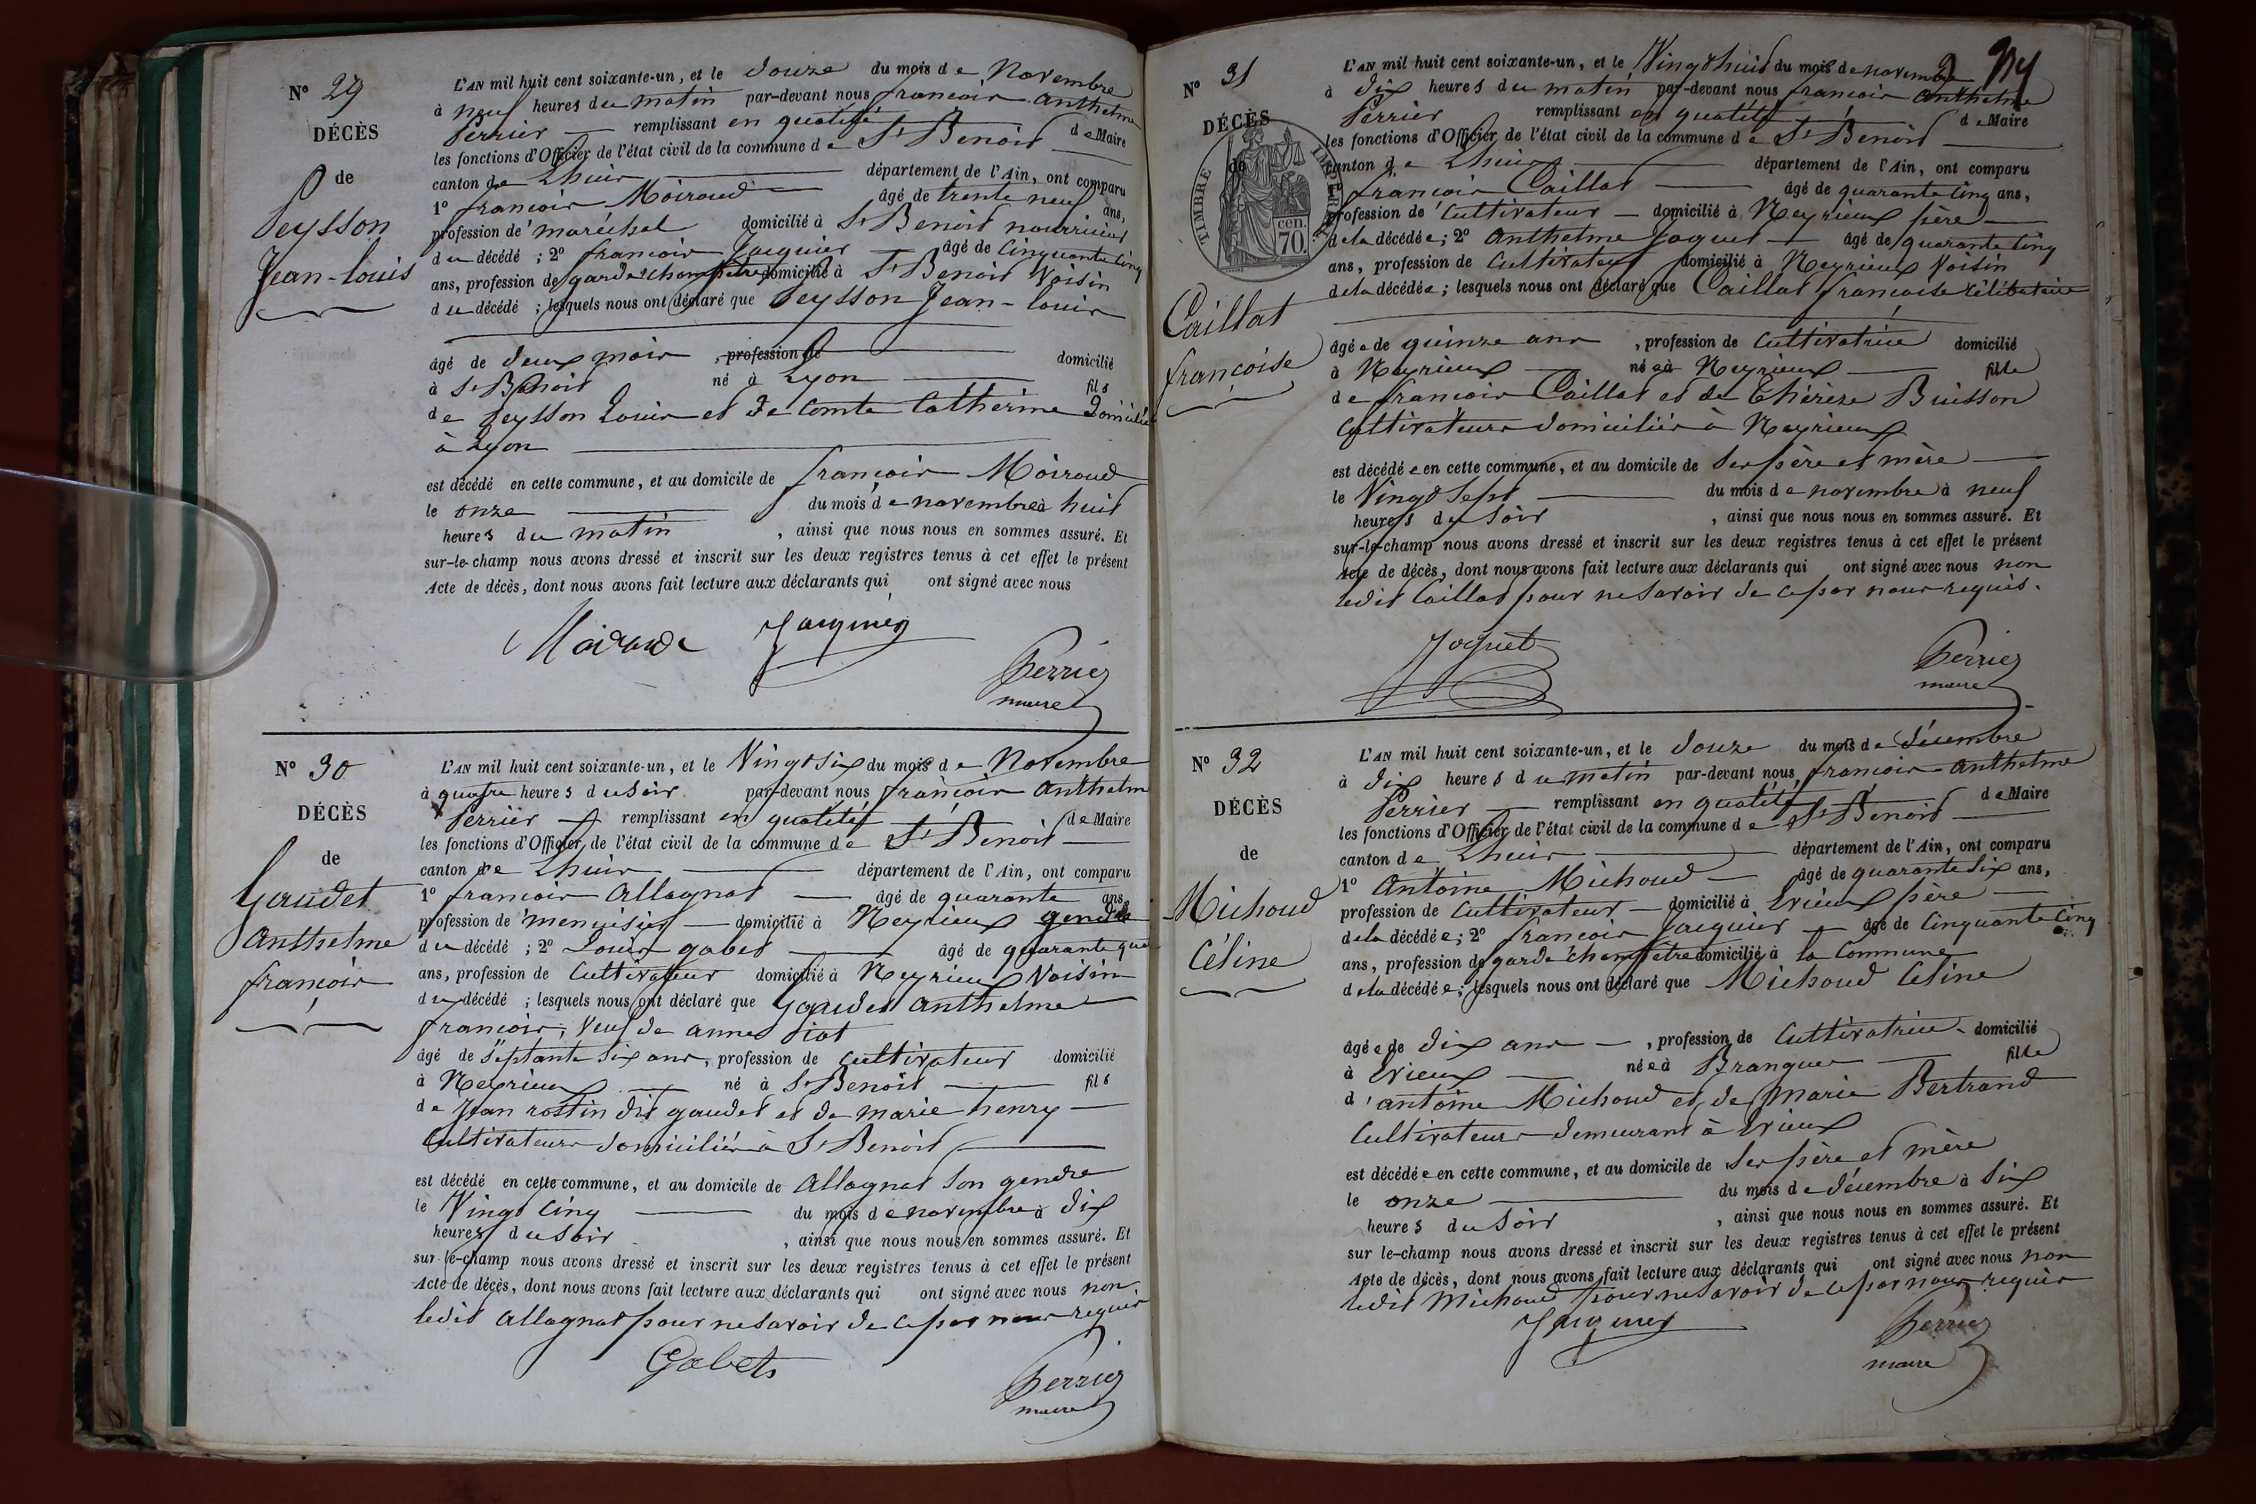 N° 29
DÉCÈS
de
Peysson
Jean-Louis
L'AN mil huit cent soixante-un, et le douze du mois de Novembre
à neuf heures du matin par-devant nous françois Anthelme
Perrier remplissant en qualité de Maire
les fonctions d'Officier de l'état civil de la commune de St Benoit
canton de Lhuis département de l'Ain, ont comparu
1° françois Moiroud âgé de trente neuf ans,
profession de maréchal domicilié à St Benoit nourricier
du décédé ; 2° françois Jacquier âgé de Cinquante Cinq
ans, profession de garde champêtre domicilié à St Benoit Voisin
du décédé ; lesquels nous ont déclaré que Peysson Jean-Louis
âgé de deux mois , profession de domicilié
à St Benoit né à Lyon fils
de Peysson Louis et de Comte Catherine Domiciliés
à Lyon
est décédé en cette commune, et au domicile de françois Moiroud
le onze du mois de novembre à huit
heures du matin , ainsi que nous nous en sommes assuré. Et
sur-le-champ nous avons dressé et inscrit sur les deux registres tenus à cet effet le présent
Acte de décès, dont nous avons fait lecture aux déclarants qui ont signé avec nous
Moiroud Jacquier
Perrier
maire
N° 30
DÉCÈS
de
Gaudet
Anthelme
françois
L'AN mil huit cent soixante-un, et le Vingt Six du mois de Novembre
à quatre heures du Soir par-devant nous françois Anthelme
Perrier remplissant en qualité de Maire
les fonctions d'Officier de l'état civil de la commune de St Benoit
canton de Lhuis département de l'Ain, ont comparu
1° françois Allagnat âgé de quarante ans
profession de menuisier domicilié à Neyrieux gendre
du décédé ; 2° Louis gabet âgé de quarante
ans, profession de Cultivateur domicilié à Neyrieux Voisin
du décédé ; lesquels nous ont déclaré que Gaudet Anthelme
françois, Veuf de anne
âgé de Septante Six ans, profession de cultivateur domicilié
à Neyrieux né à St Benoit fils
de Jean rostin dit gaudet et de marie henry
Cultivateurs domiciliés à St Benoit
est décédé en cette commune, et au domicile de Allagnat Son gendre
le Vingt Cinq du mois de novembre à dix
heures du Soir , ainsi que nous nous en sommes assuré. Et
sur-le-champ nous avons dressé et inscrit sur les deux registres tenus à cet effet le présent
Acte de décès, dont nous avons fait lecture aux déclarants qui ont signé avec nous non
ledit Allagnat pour ne Savoir de ce par nous requis
Gabet
Perrier
maire
N° 31
DÉCÈS
de
TIMBRE IMPÉRIAL
70 cen.
Caillat
françoise
L'AN mil huit cent soixante-un, et le Vingt huit du mois de novembre
à dix heures du matin par-devant nous françois Anthelme
Perrier remplissant en qualité de Maire
les fonctions d'Officier de l'état civil de la commune de St Benoit
canton de Lhuis département de l'Ain, ont comparu
françois Caillat âgé de quarante Cinq ans,
profession de Cultivateur domicilié à Neyrieux père
de la décédée ; 2° Anthelme Joguet âgé de quarante Cinq
ans, profession de Cultivateur domicilié à Neyrieux Voisin
de la décédée ; lesquels nous ont déclaré que Caillat françoise Célibataire
âgée de quinze ans , profession de Cultivatrice domicilié
à Neyrieux née à Neyrieux fille
de françois Caillat et de Thérèse Buisson
Cultivateurs domiciliés à Neyrieux
est décédée en cette commune, et au domicile de Ses père et mère
le Vingt Sept du mois de novembre à neuf
heures du Soir , ainsi que nous nous en sommes assuré. Et
sur-le-champ nous avons dressé et inscrit sur les deux registres tenus à cet effet le présent
Acte de décès, dont nous avons fait lecture aux déclarants qui ont signé avec nous non
ledit Caillat pour ne Savoir de ce par nous requis.
Joguet
Perrier
maire
N° 32
DÉCÈS
de
Michoud
Céline
L'AN mil huit cent soixante-un, et le douze du mois de décembre
à dix heures du matin par-devant nous françois Anthelme
Perrier remplissant en qualité de Maire
les fonctions d'Officier de l'état civil de la commune de St Benoit
canton de Lhuis département de l'Ain, ont comparu
1° Antoine Michoud âgé de quarante Six ans,
profession de Cultivateur domicilié à Evieux père
de la décédée ; 2° françois Jacquier âgé de Cinquante Cinq
ans, profession de garde champêtre domicilié à la Commune
de la décédée ; lesquels nous ont déclaré que Michoud Céline
âgée de dix ans , profession de Cultivatrice domicilié
à Evieux née à Brangues fille
d'antoine Michoud et de Marie Bertrand
Cultivateurs demeurant à Evieux
est décédée en cette commune, et au domicile de Ses père et mère
le onze du mois de décembre à Six
heures du Soir , ainsi que nous nous en sommes assuré. Et
sur le-champ nous avons dressé et inscrit sur les deux registres tenus à cet effet le présent
Acte de décès, dont nous avons fait lecture aux déclarants qui ont signé avec nous non
ledit Michoud pour ne Savoir de ce par nous requis
Jacquier
Perrier
maire